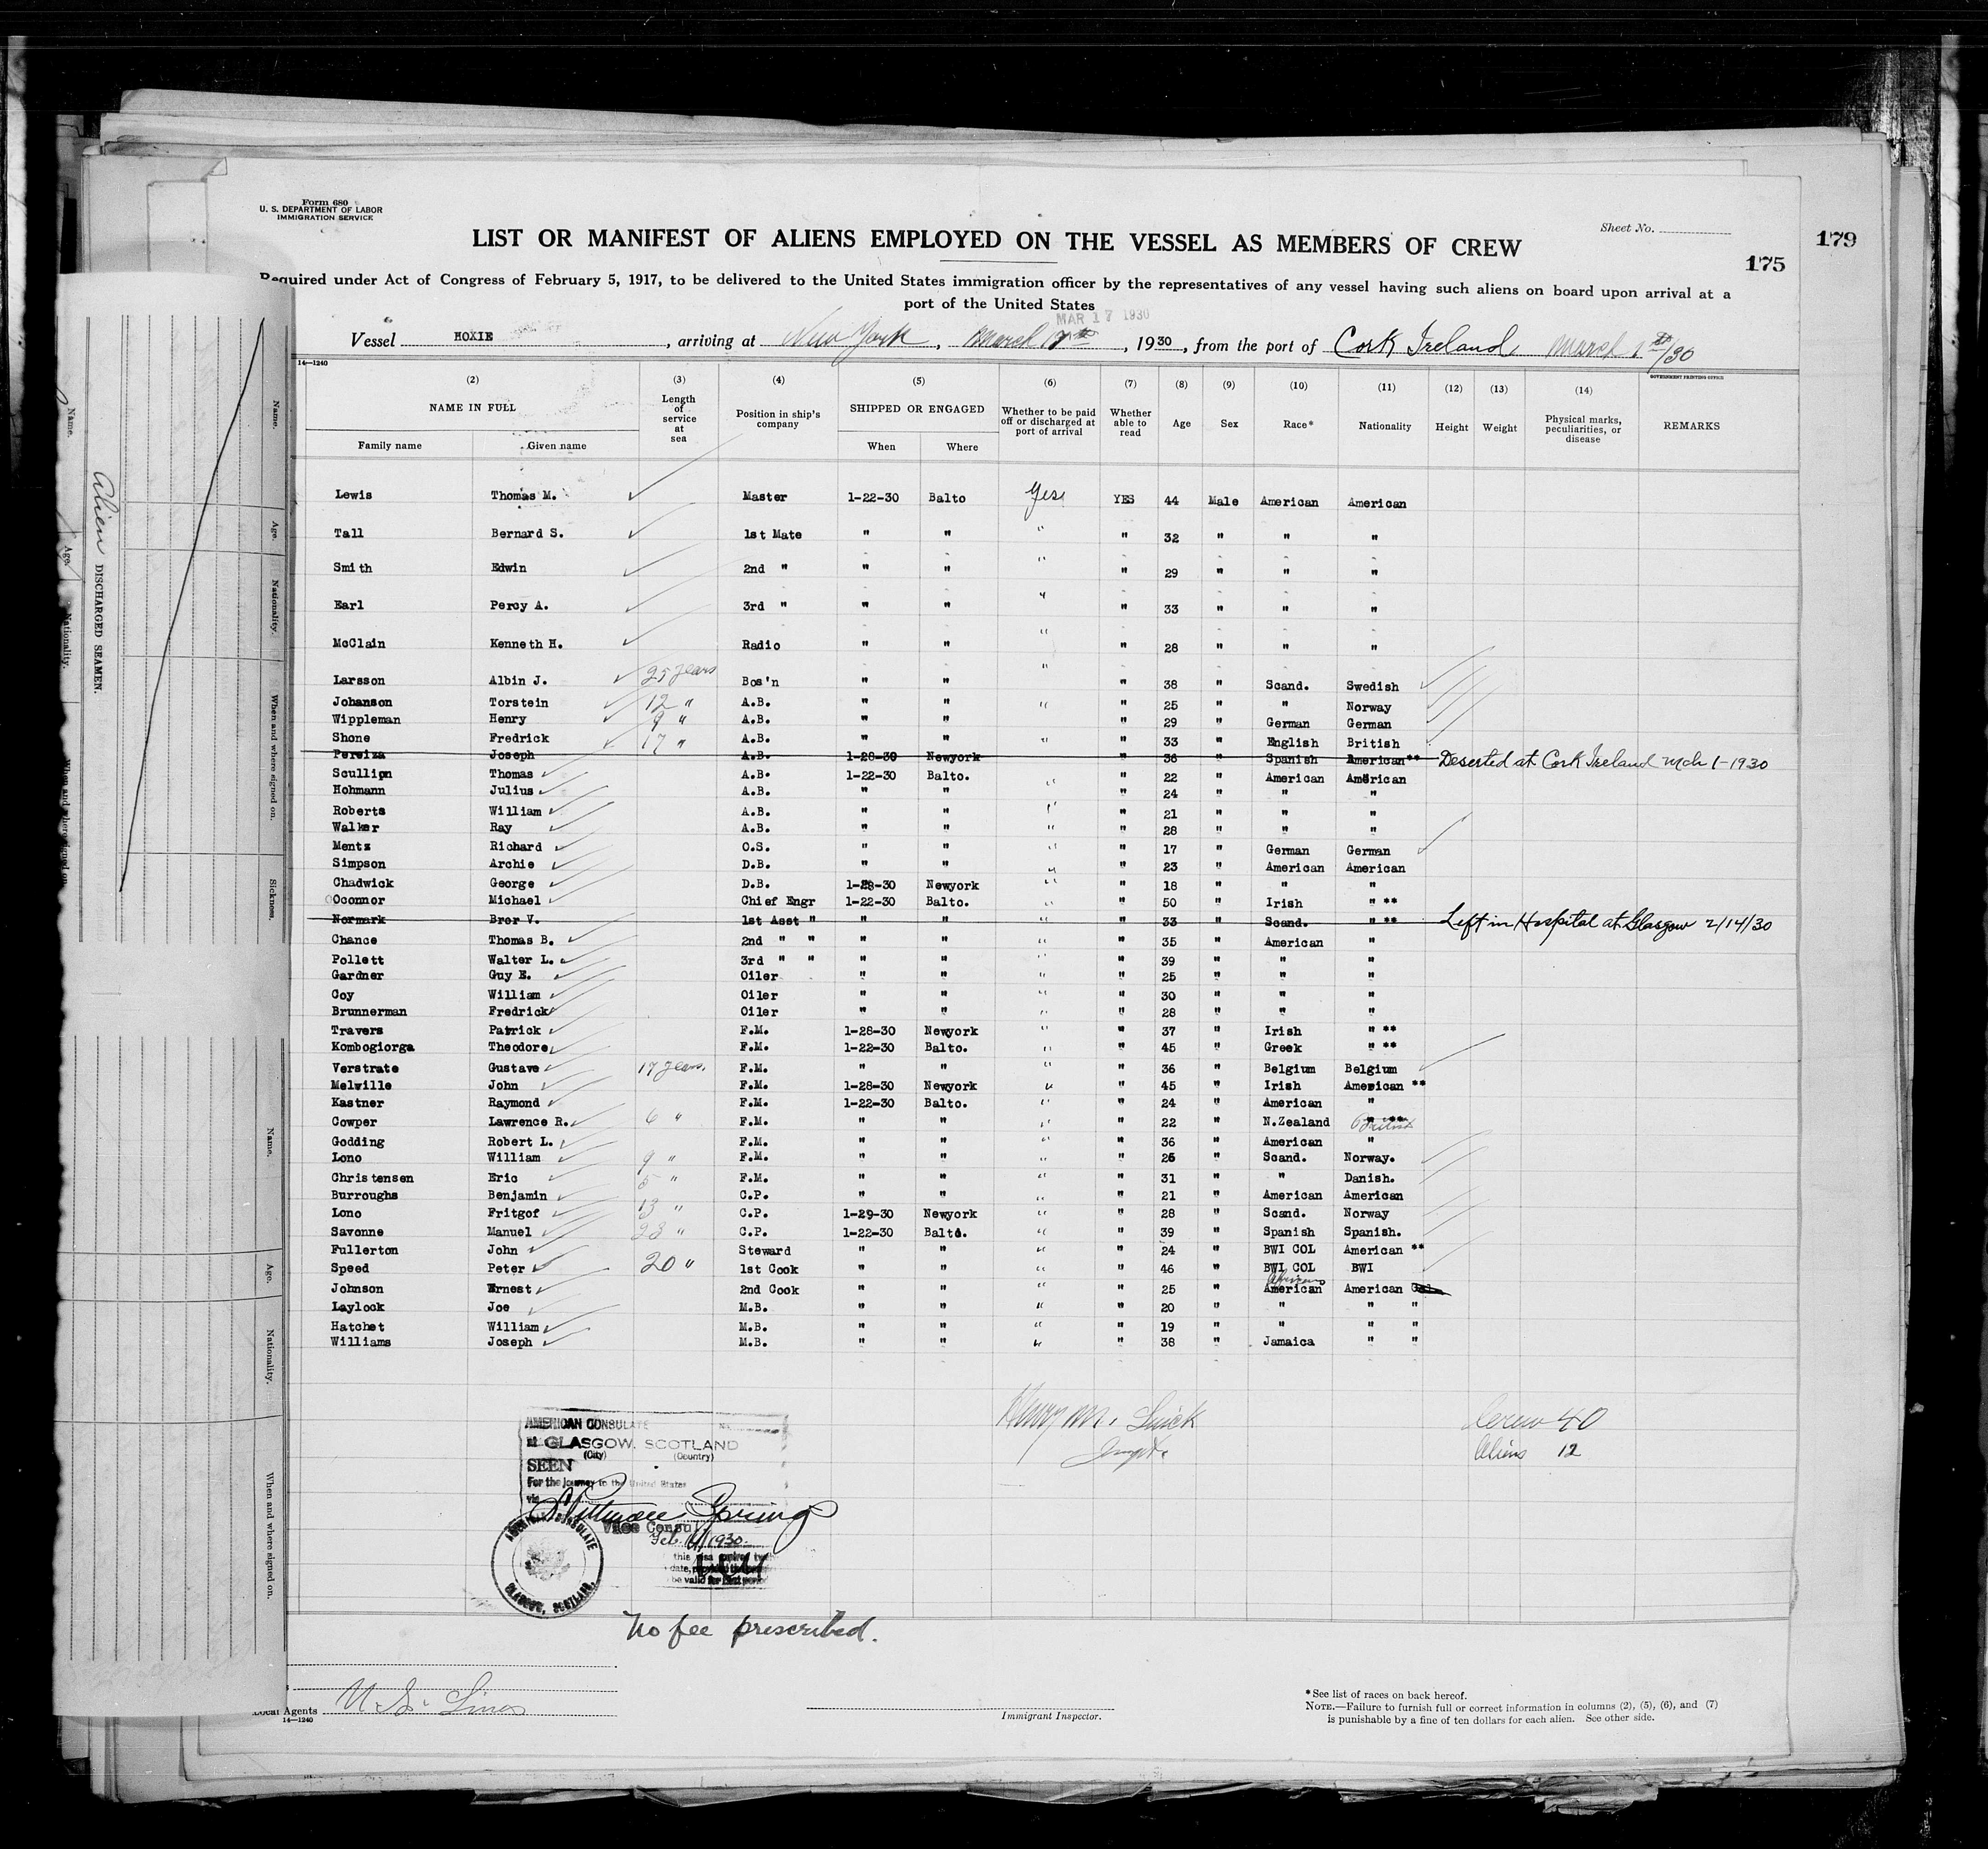 Form 680
U. S. DEPARTMENT OF LABOR
IMMIGRATION SERVICE
Sheet No.
179
175
LIST OR MANIFEST OF ALIENS EMPLOYED ON THE VESSEL AS MEMBERS OF CREW
Required under Act of Congress of February 5, 1917, to be delivered to the United States immigration officer by the representatives of any vessel having such aliens on board upon arrival at a
port of the United States
MAR 17 1930
Vessel HOXIE, arriving at New York, March 17th, 1930, from the port of Cork Ireland March 1st/30
14—1240
GOVERNMENT PRINTING OFFICE
(2) (3) (4) (5) (6) (7) (8) (9) (10) (11) (12) (13) (14)
NAME IN FULL Length of service at sea Position in ship's company SHIPPED OR ENGAGED Whether to be paid off or discharged at port of arrival Whether able to read Age Sex Race* Nationality Height Weight Physical marks, peculiarities, or disease REMARKS
Family name Given name When Where
Lewis Thomas M. Master 1-22-30 Balto Yes YES 44 Male American American
Tall Bernard S. 1st Mate " " " " 32 " " "
Smith Edwin 2nd " " " " " 29 " " "
Earl Percy A. 3rd " " " " " 33 " " "
McClain Kenneth H. Radio " " " " 28 " " "
Larsson Albin J. 25 years Bos'n " " " " 38 " Scand. Swedish
Johanson Torstein 12 " A.B. " " " " 25 " " Norway
Wippleman Henry 9 " A.B. " " " 29 " German German
Shone Fredrick 17 " A.B. " " " " 33 " English British
Pereiza Joseph A.B. 1-28-30 Newyork " 36 " Spanish American** Deserted at Cork Ireland Mch 1-1930
Scullion Thomas A.B. 1-22-30 Balto. " " 22 " American American
Hohmann Julius A.B. " " " 24 " " "
Roberts William A.B. " " " " 21 " " "
Walker Ray A.B. " " " " 28 " " "
Mentz Richard O.S. " " " " 17 " German German
Simpson Archie D.B. " " " " 23 " American American
Chadwick George D.B. 1-28-30 Newyork " " 18 " " "
Oconnor Michael Chief Engr 1-22-30 Balto. " " 50 " Irish " **
Normark Bror V. 1st Asst " " " " " 33 " Scand. " ** Left in Hospital at Glasgow 2/14/30
Chance Thomas B. 2nd " " " " " " 35 " American "
Pollett Walter L. 3rd " " " " " " 39 " " "
Gardner Guy E. Oiler " " " " 25 " " "
Coy William Oiler " " " " 30 " " "
Brunnerman Fredrick Oiler " " " " 28 " " "
Travers Patrick F.M. 1-28-30 Newyork " " 37 " Irish " **
Kombogiorga Theodore F.M. 1-22-30 Balto. " " 45 " Greek " **
Verstrate Gustave 17 years. F.M. " " " " 36 " Belgium Belgium
Melville John F.M. 1-28-30 Newyork " " 45 " Irish American **
Kastner Raymond F.M. 1-22-30 Balto. " " 24 " American "
Cowper Lawrence R. 6 " F.M. " " " " 22 " N.Zealand British
Godding Robert L. F.M. " " " " 36 " American "
Lono William 9 " F.M. " " " " 26 " Scand. Norway.
Christensen Eric 5 " F.M. " " " " 31 " " Danish.
Burroughs Benjamin C.P. " " " " 21 " American American
Lono Fritgof 13 " C.P. 1-29-30 Newyork " " 28 " Scand. Norway
Savonne Manuel 23 " C.P. 1-22-30 Balto. " " 39 " Spanish Spanish.
Fullerton John Steward " " " " 24 " BWI COL American **
Speed Peter 20 " 1st Cook " " " " 46 " BWI COL BWI
African
Johnson Ernest 2nd Cook " " " " 25 " American American
Laylock Joe M.B. " " " " 20 " " " "
Hatchet William M.B. " " " " 19 " " " "
Williams Joseph M.B. " " " " 38 " Jamaica " "
Henry M.
Inspt.
Crew 40
Aliens 12
AMERICAN CONSULATE
at GLASGOW, SCOTLAND
(City) (Country)
SEEN
For the journey to the United States
via
Vice Consul
Feb. 1930.
AMERICAN CONSULATE
GLASGOW, SCOTLAND.
No fee prescribed.
Local Agents U.S. Lines
14—1240
Immigrant Inspector.
*See list of races on back hereof.
NOTE.—Failure to furnish full or correct information in columns (2), (5), (6), and (7)
is punishable by a fine of ten dollars for each alien. See other side.
Alien DISCHARGED SEAMEN.
Name. Age. Nationality. When and where signed on. Sickness.
Name. Age. Nationality. When and where signed on.
Name. Age. Nationality. When and where signed on.